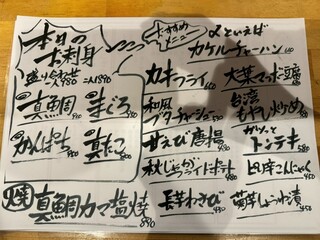 本日の
お刺身
盛り合わせ
一人980 二人1890
真鯛
まぐろ
かんぱち
真だこ
焼 真鯛カマ塩焼 890
おすすめ
メニュー
〆といえば
カケルチャーハン
カキフライ
大葉マーボー豆腐
和風
バターチャーシュー
台湾
もやし炒め
甘えび唐揚
ガツッと
トンテキ
秋じゃがフライドポテト
ピリ辛こんにゃく
長芋わさび
菊芋しょうゆ漬